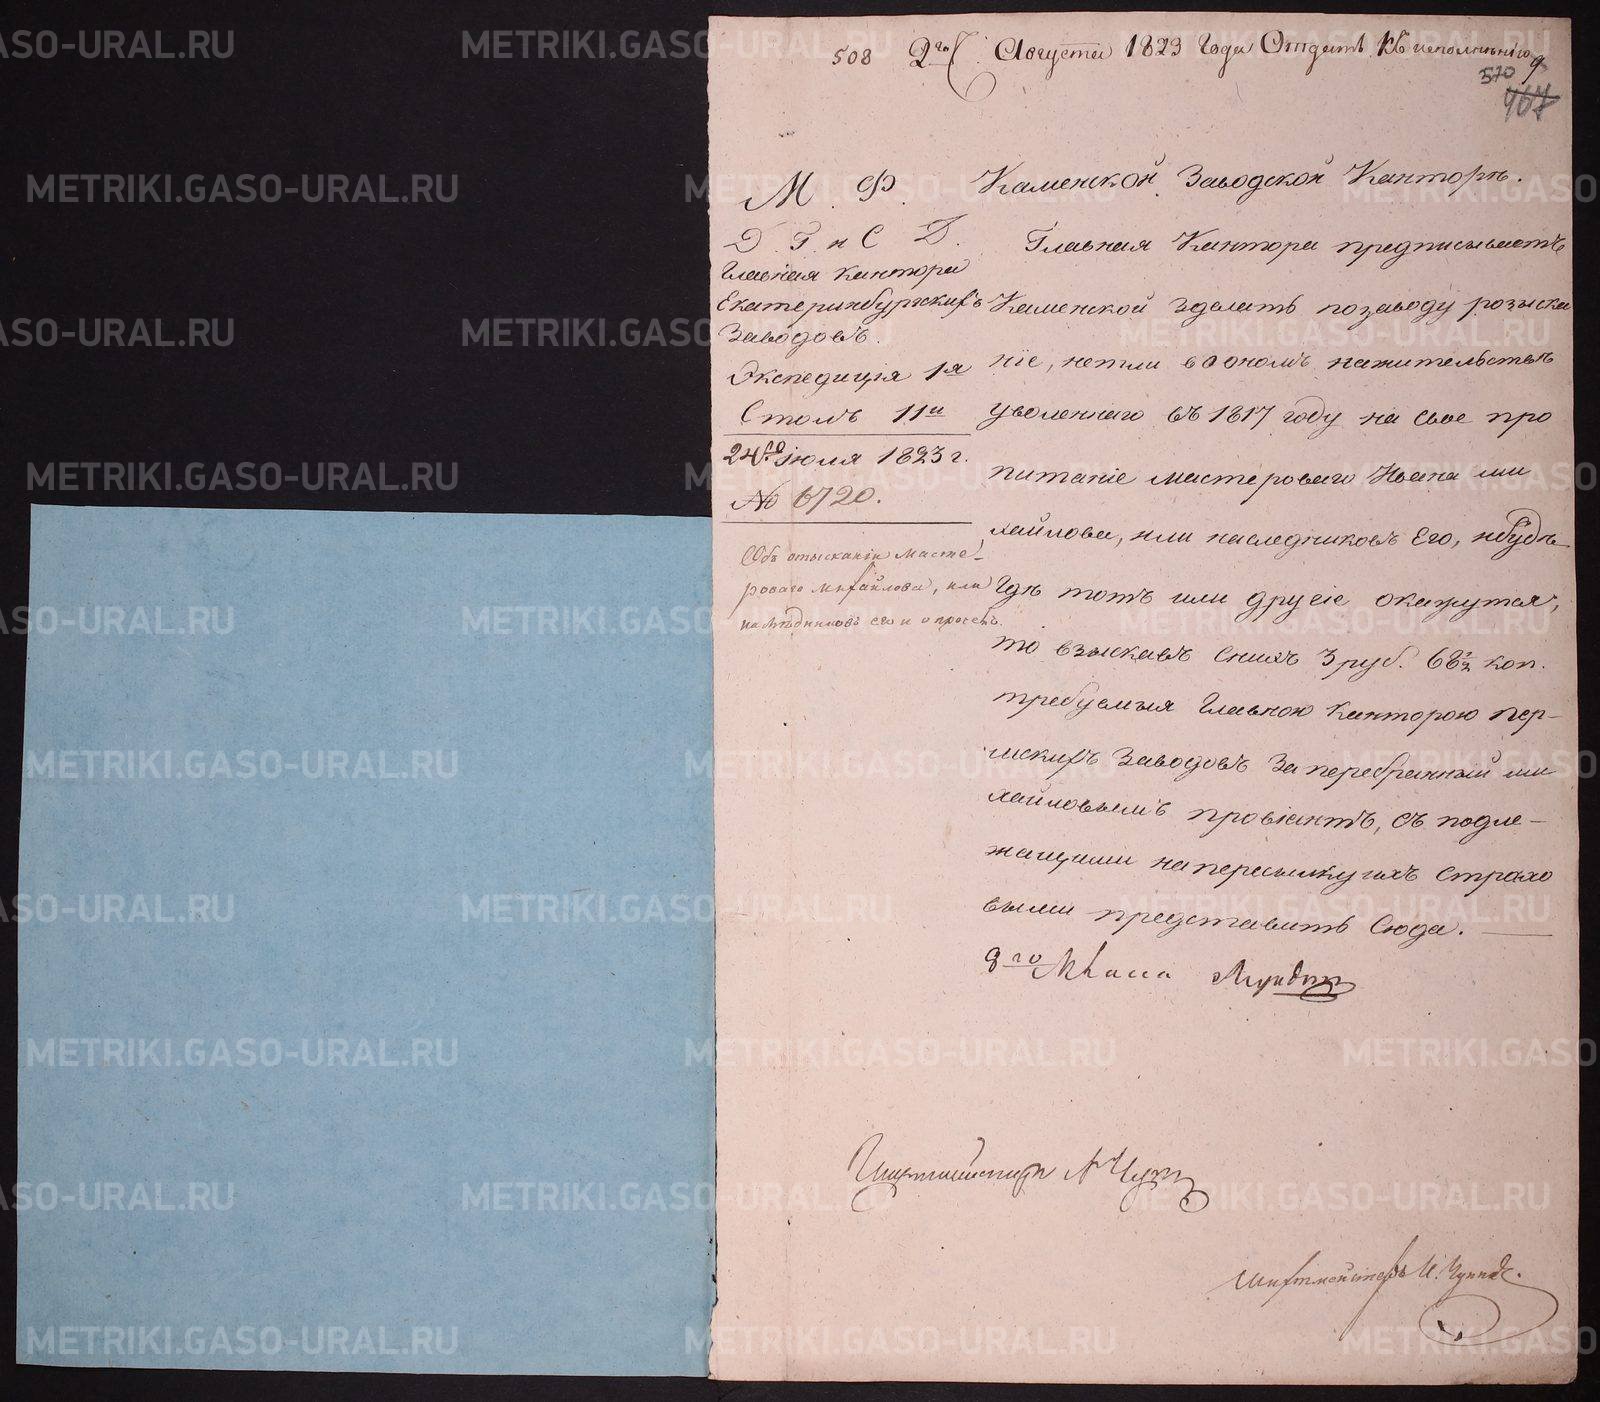 508 2го Августа 1823 года Отдать къ исполненію
570
467
М. Ф.
Д. Г. и С. Д.
Главная кантора
Екатеринбургскихъ
Заводовъ.
Экспедиція 1я
Столъ 11й
24го іюля 1823 г.
№ 6720.
Объ отысканіи масте-
роваго Михайлова, или
наследниковъ его и о просьб.
Каменской Заводской Канторѣ.
Главная Кантора предписываетъ
Каменской зделать позаводу розыска
ніе, нетли в ономъ нажительствѣ
уволеннаго въ 1817 году на свое про
питаніе мастероваго Ивана ми
хайлова, или наследниковъ Его, ибудѣ
Гдѣ тотъ или другіе окажутся,
то взыскавъ Снихъ 3 руб. 68½ коп.
требуемыя Главною Канторою пер-
мскихъ Заводовъ За перебранный ми
хайловымъ провіянтъ, съ подле-
жащими напересылку ихъ страхо
выми представить Сюда.
8го
Шихтмейстеръ
Шихтмейстеръ И.
METRIKI.GASO-URAL.RU